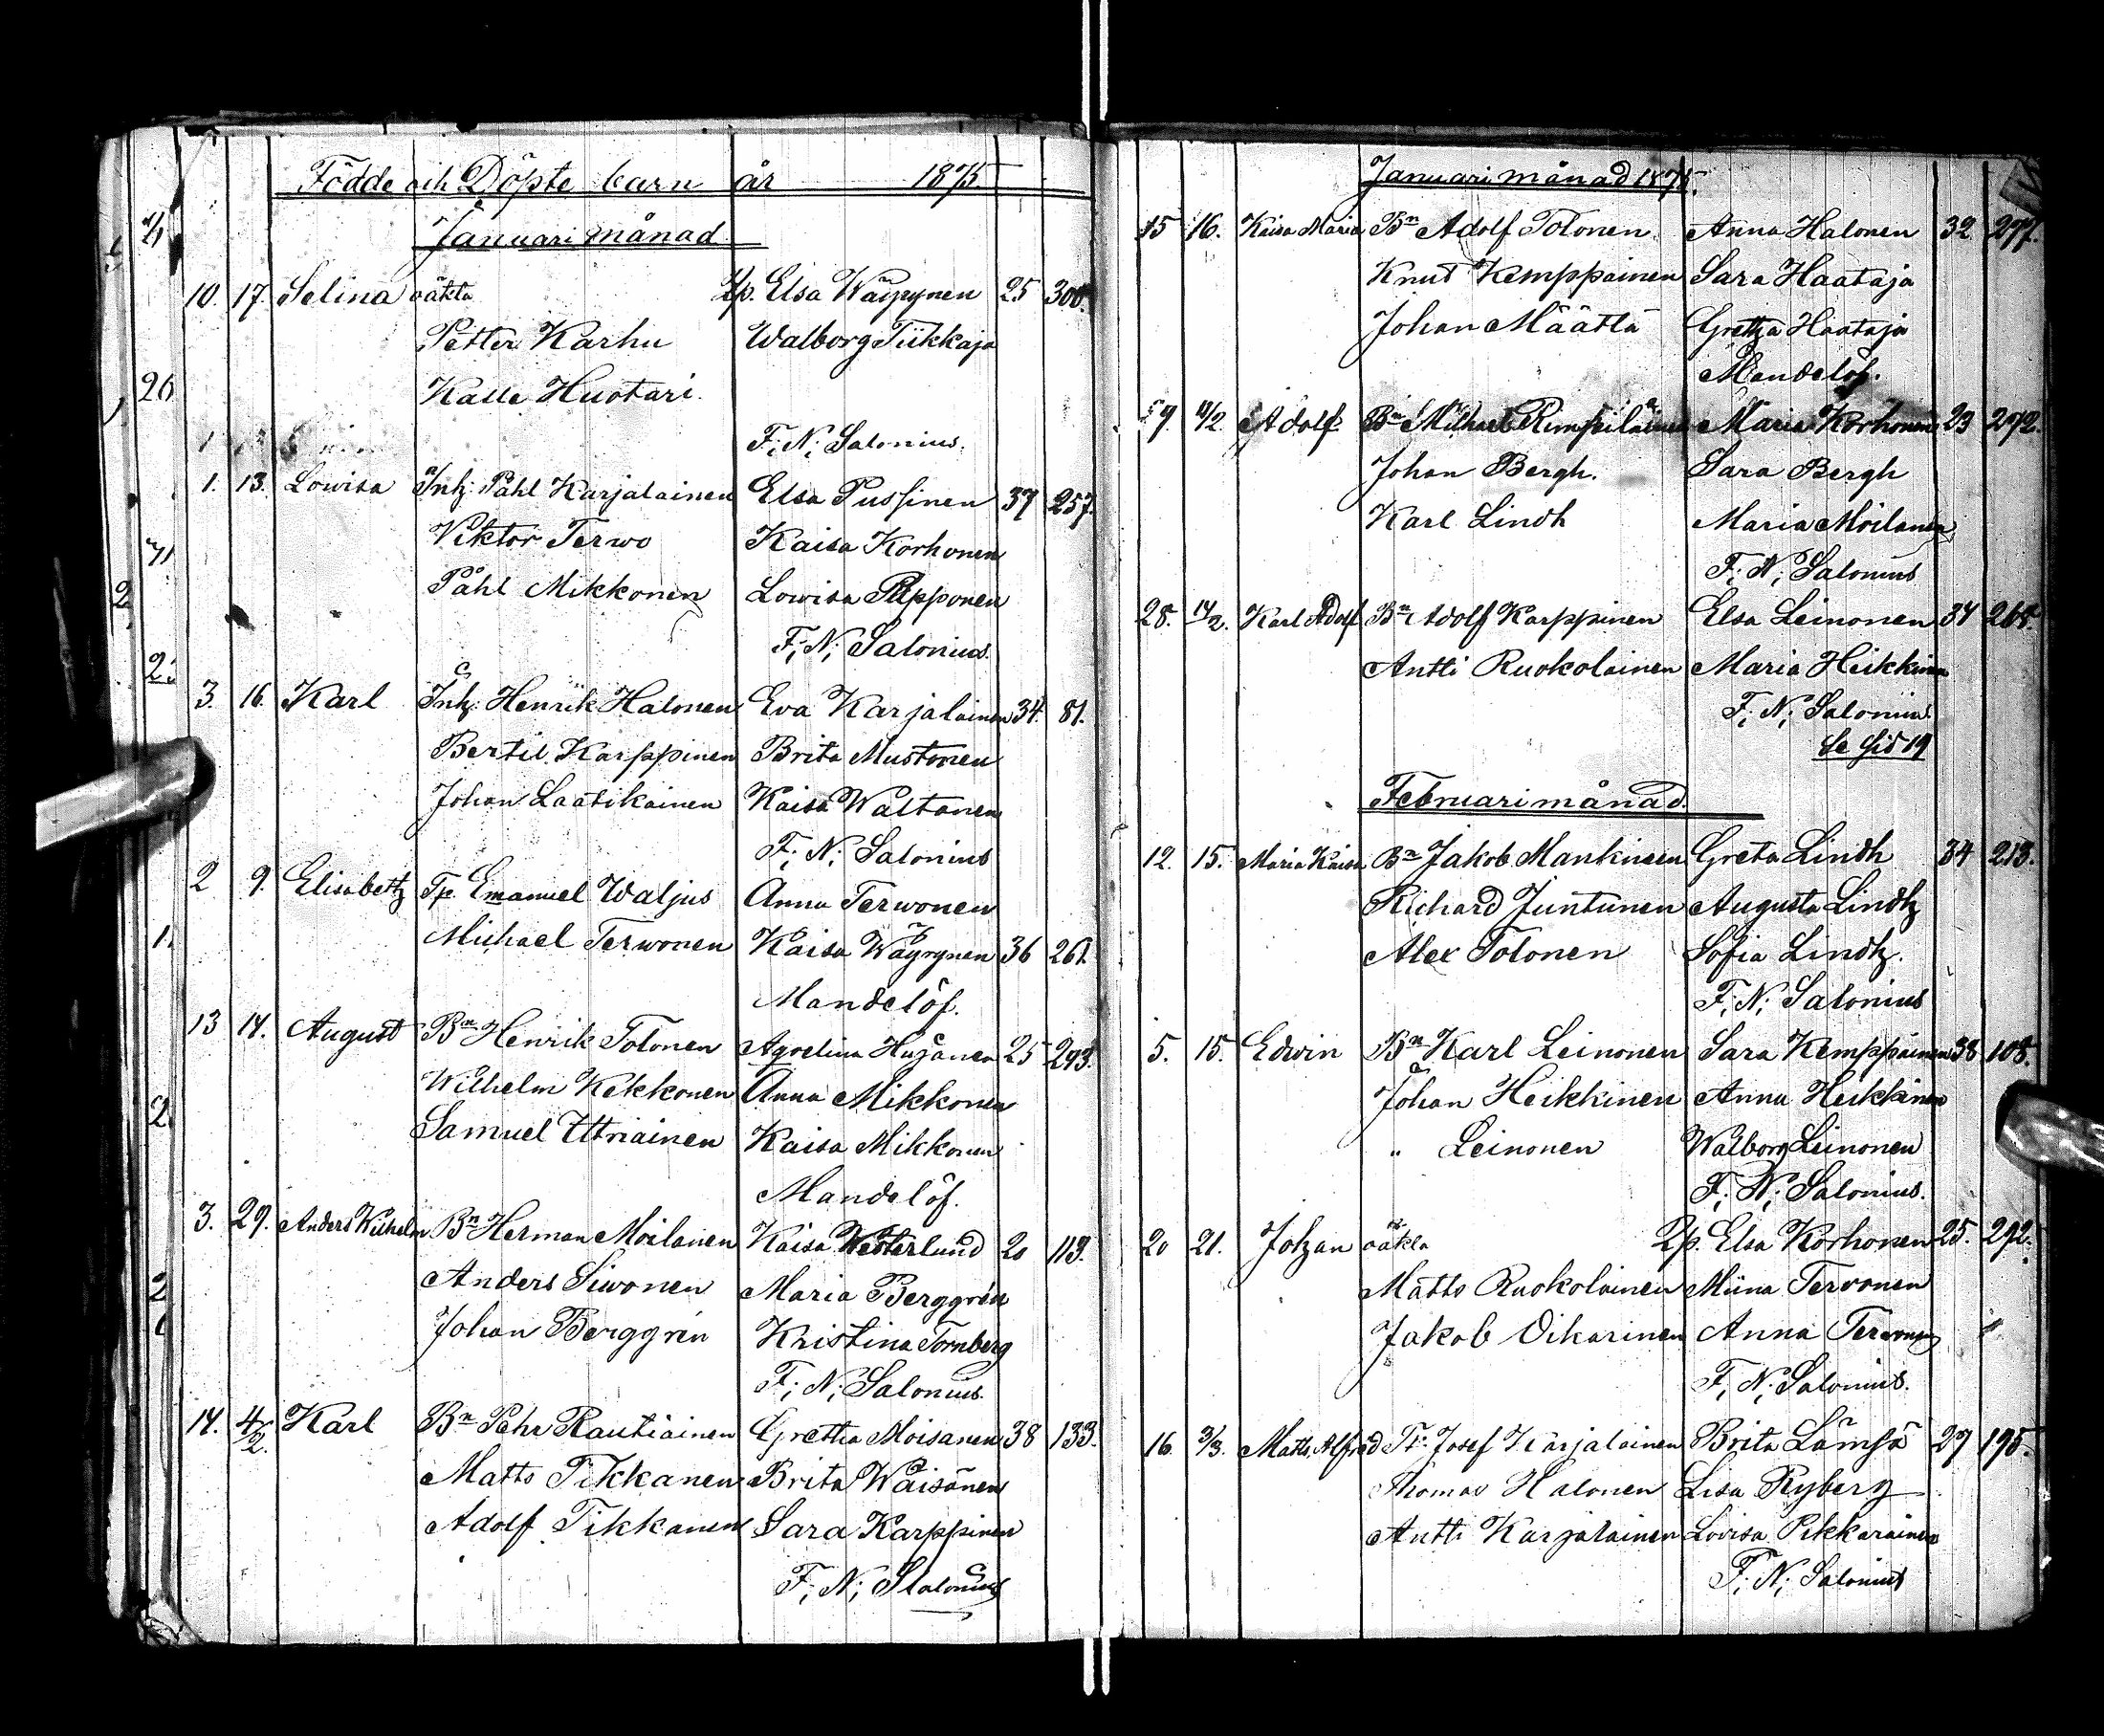 Födde och Döpte barn år 1875
Januari månad
10. 17. Selina oäkta Elsa Wäyrynen 25 300.
Petter Karhu Walborg Tikkaja
Kalle Huotari.
F; N; Salonius.
1. 13. Lowisa Inh. Påhl Karjalainen Elsa Pussinen 37 257.
Viktor Terwo Kaisa Korhonen
Påhl Mikkonen Lowisa Piipponen
F; N; Salonius.
3. 16. Karl Inh. Henrik Halonen Eva Karjalainen 34. 81.
Bertil Karppinen Brita Mustonen
Johan Laatikainen Kaisa Waltanen
F; N; Salonius
2 9. Elisabeth Tp. Emanuel Waljus Anna Terwonen
Michael Terwonen Kaisa Wäyrynen 36 261.
Mandelöf.
13 14. August Bn Henrik Tolonen Agvelina Huĵanen 25 293.
Wilhelm Kekkonen Anna Mikkonen
Samuel Utriainen Kaisa Mikkonen
Mandelöf.
3. 29. Anders Wilhelm Bn Herman Moilanen Kaisa Westerlund 20 113.
Anders Siwonen Maria Berggrén
Johan Berggrén Kristina Tornberg
F; N; Salonius.
14. 4/2. Karl Bn Pehr Rautiainen Gretha Moisanen 38 133.
Matts Tikkanen Brita Wäisänen
Adolf Tikkanen Sara Karppinen
F; N; Salonius
Januari månad 1875.
15 16. Kaisa Maria Bn Adolf Tolonen Anna Halonen 32 277.
Knut Kemppainen Sara Haataja
Johan Määttä Gretha Haataja
Mandelöf.
10/2. Adolf Bn Michael Rimpiläinen Maria Korhonen 23 292.
Johan Bergh. Sara Bergh
Karl Lindh Maria Moilanen
F; N; Salonius
28. 14/2. Karl Adolf Bn Adolf Karppinen Elsa Leinonen 34 268.
Antti Ruokolainen Maria Heikkinen
F; N; Salonius.
Se sid 19
Februari månad.
12. 15. Maria Kaisa Bn Jakob Mankinen Greta Lindh 34 213.
Richard Juntunen Augusta Lindh
Alex Tolonen Sofia Lindh.
F; N; Salonius
5. 15. Edwin Bn Karl Leinonen Sara Kemppainen 38 108.
Johan Heikkinen Anna Heikkinen
" Leinonen Walborg Leinonen
F; N; Salonius.
20 21. Johan oäkta Elsa Korhonen 25. 292.
Matts Ruokolainen Miina Tervonen
Jakob Oikarinen Anna Terwonen
F; N; Salonius.
16. 3/3. Matts Alfred Josef Karjalainen Brita Lämsä 27 195.
Thomas Halonen Lisa Ryberg
Antti Karjalainen Lovisa Pikkarainen
F; N; Salonius